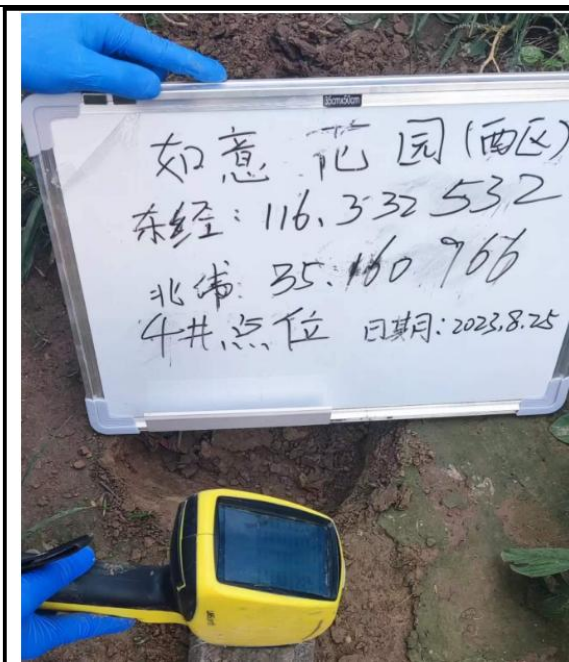 36cmx50cm
如意花园(西区)
东经: 116.332532
北纬: 35.160966
4#点位 日期: 2023.8.25